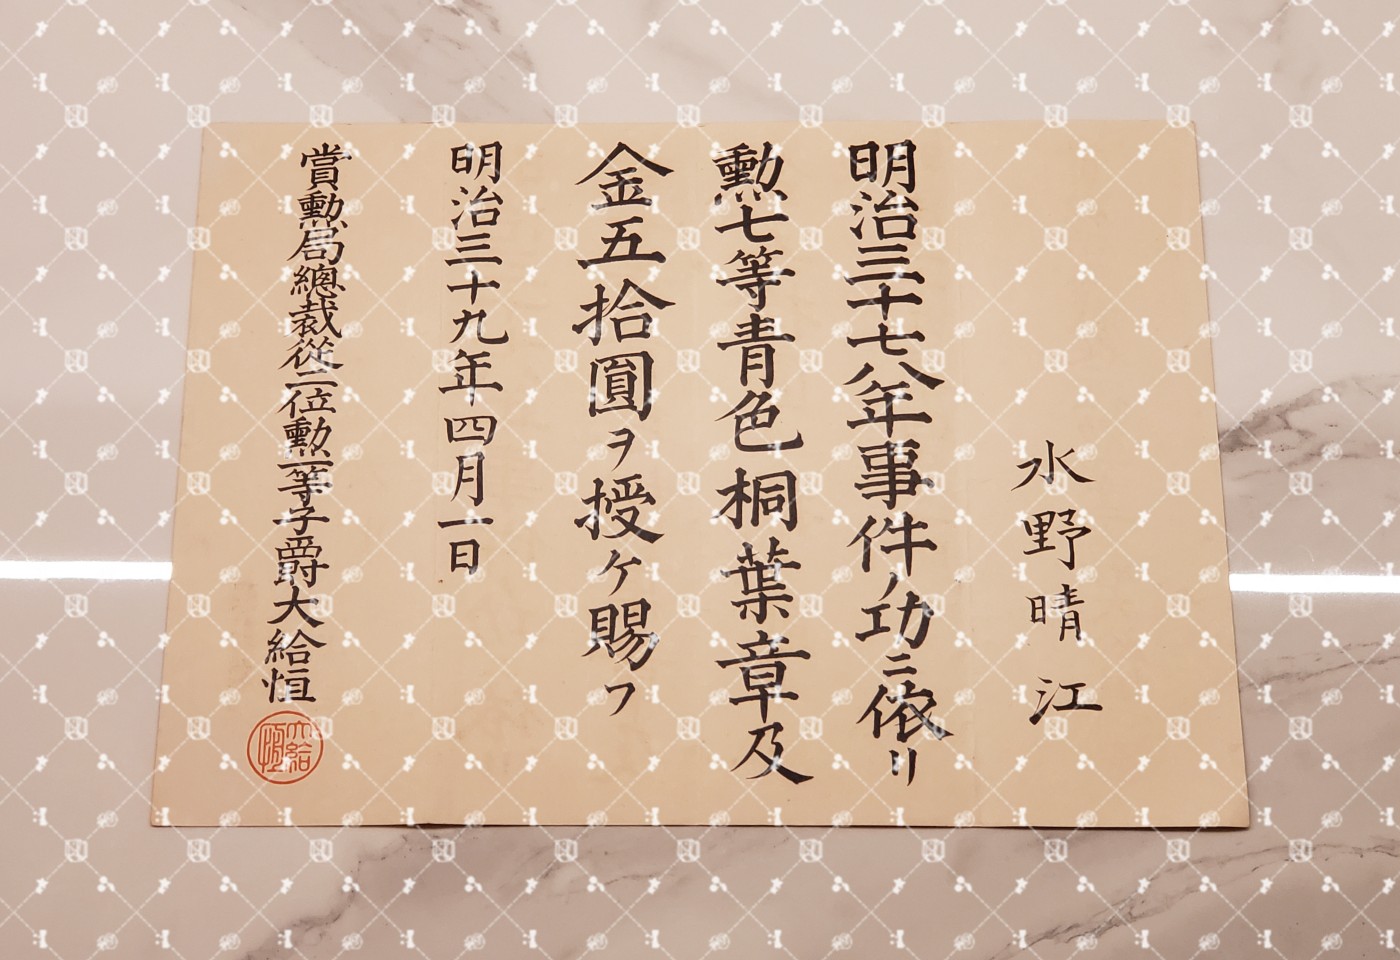 水野晴江
明治三十七八年事件ノ功ニ依リ
勲七等青色桐葉章及
金五拾圓ヲ授ケ賜フ
明治三十九年四月一日
賞勲局總裁從二位勲一等子爵大給恒
大給恒